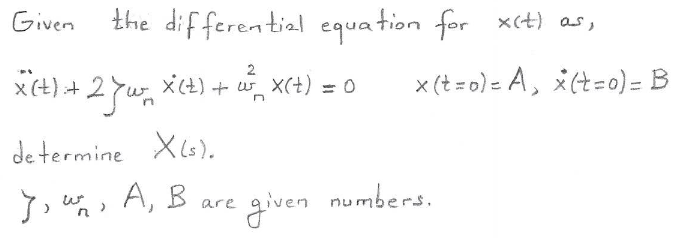 Given the differential equation for x(t) as,
ẍ(t) + 2ζωₙ ẋ(t) + ωₙ² x(t) = 0 x(t=0) = A, ẋ(t=0) = B
determine X(s).
ζ, ωₙ, A, B are given numbers.